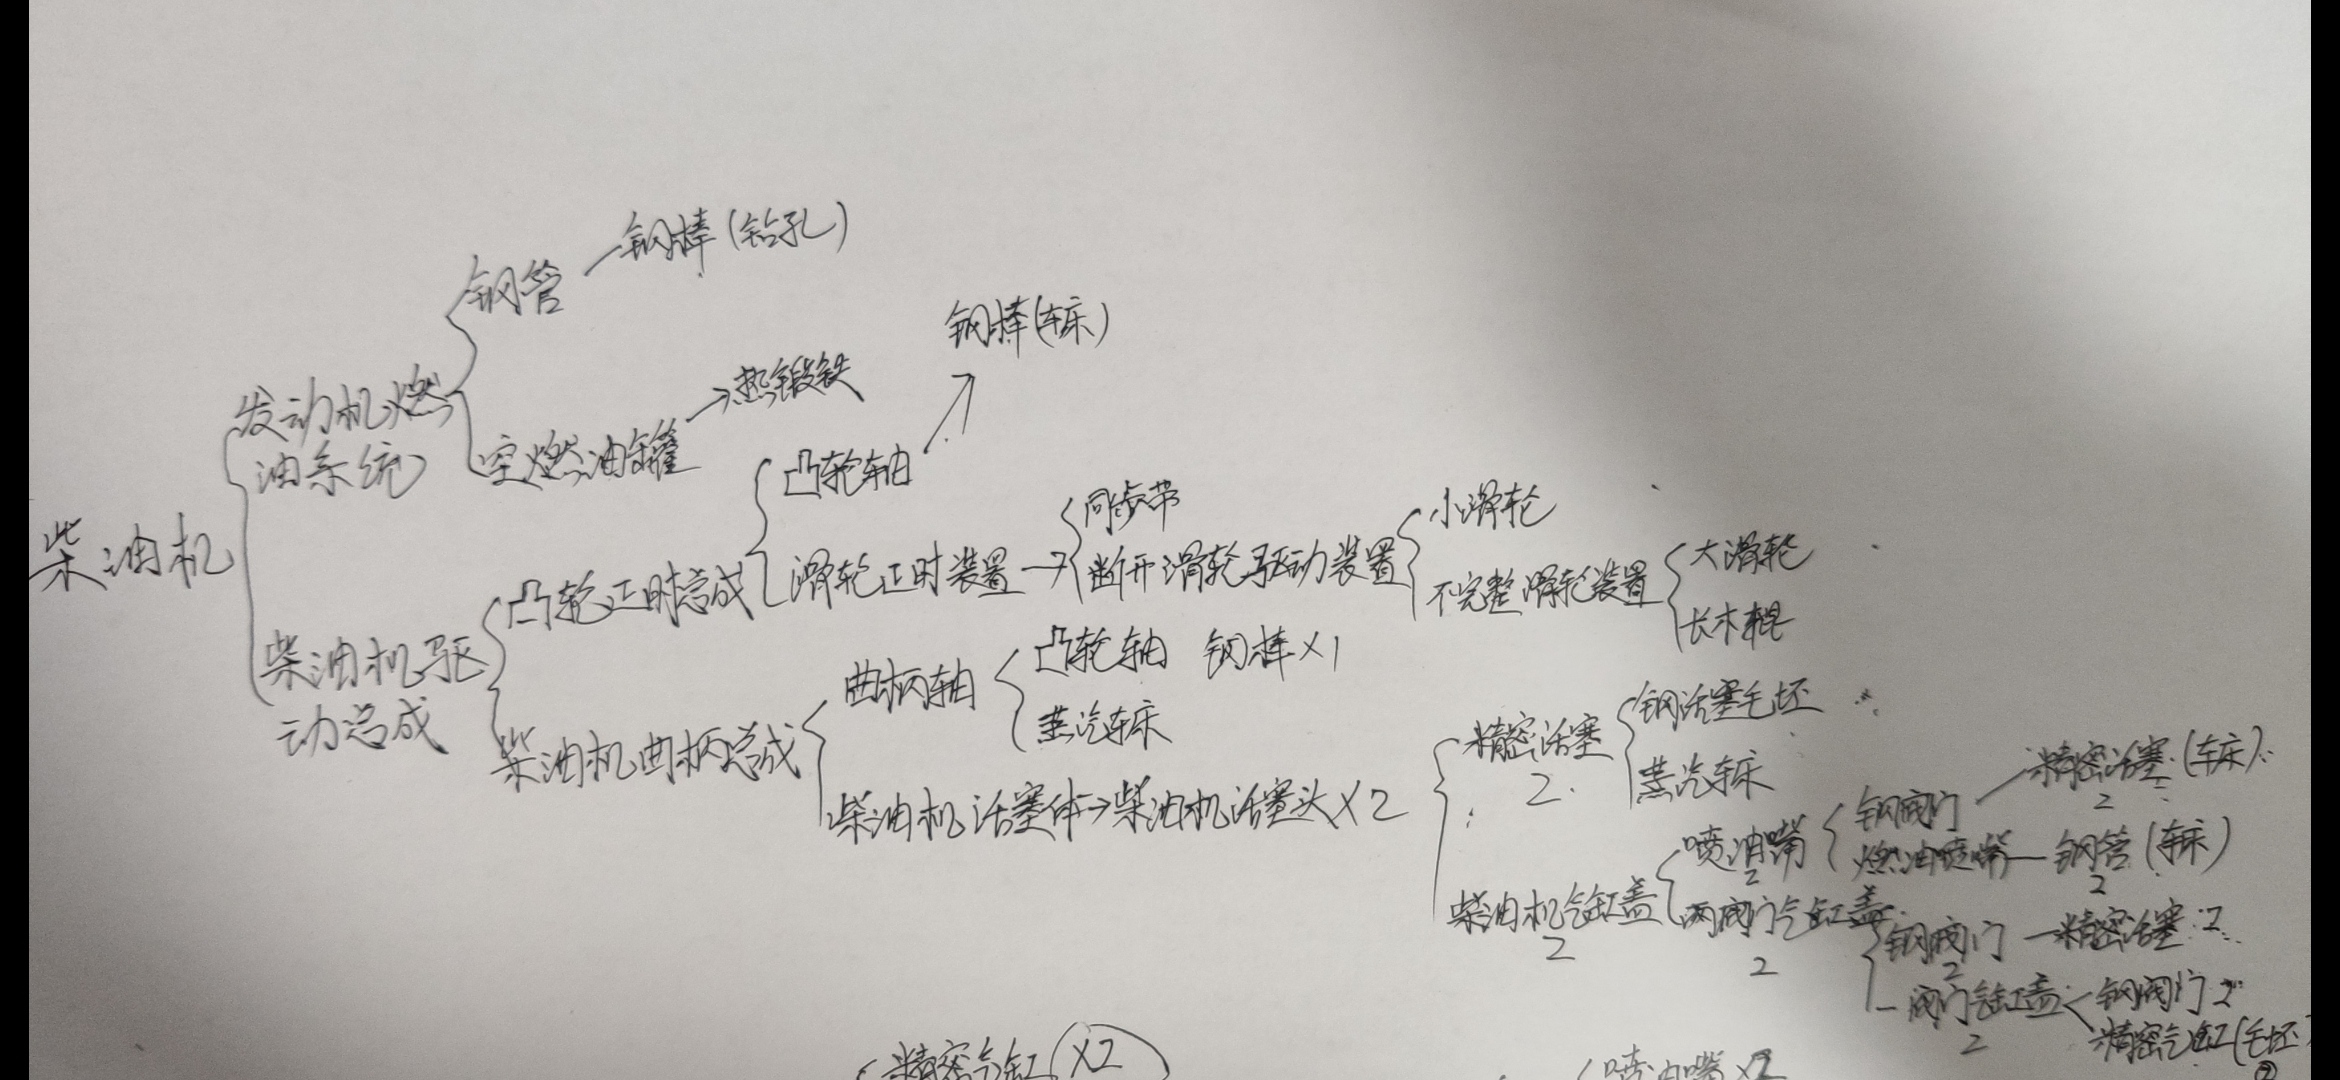 钢棒(钻孔)
钢管
钢棒(车床)
热锻铁
发动机燃
油系统
空燃油罐
凸轮轴
同步带
小滑轮
柴油机
大滑轮
滑轮正时装置
断开滑轮驱动装置
不完整滑轮装置
凸轮正时总成
长木棍
柴油机驱
动总成
凸轮轴 钢棒×1
曲柄轴
蒸汽车床
钢活塞毛坯
精密活塞
2
蒸汽车床
柴油机曲柄总成
柴油机活塞体→柴油机活塞头×2
精密活塞(车床)
2
钢阀门
喷油嘴
2
燃油喷嘴—钢管(车床)
2
柴油机气缸盖
2
两阀门气缸盖
2
钢阀门—精密活塞 2
2
一阀门气缸盖
2
钢阀门 2
精密气缸(毛坯
②
精密气缸×2
喷油嘴×2